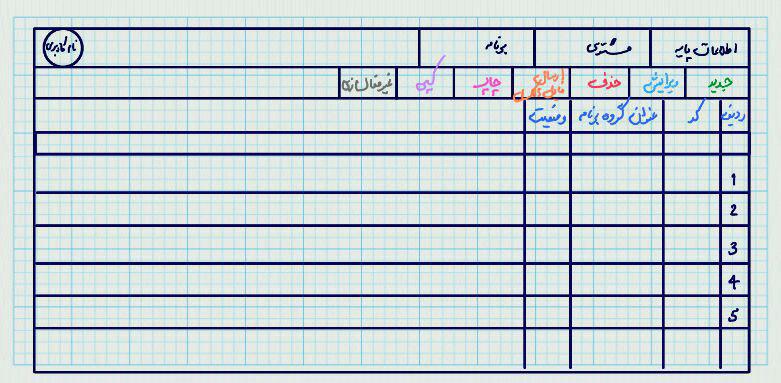 اطلاعات پایه مشتری برنامه نام کاربری
جدید ویرایش حذف ارسال فایل چاپ کپی غیرفعالسازی
ردیف کد عنوان گروه برنامه وضعیت
1
2
3
4
5